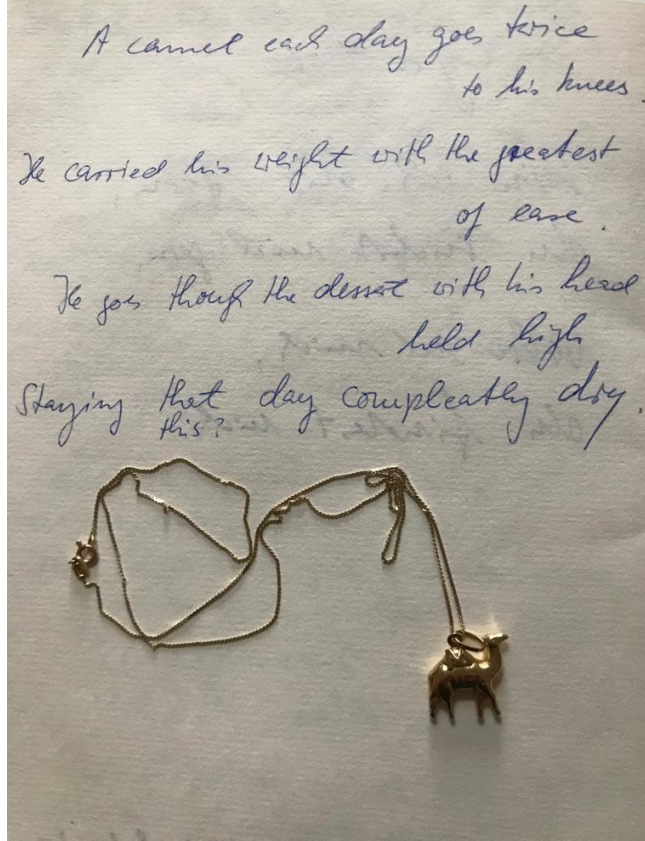 A camel each day goes twice
to his knees
He carried his weight with the greatest
of ease.
He goes though the dessert with his head
held high
Staying that day compleatly dry.
this?